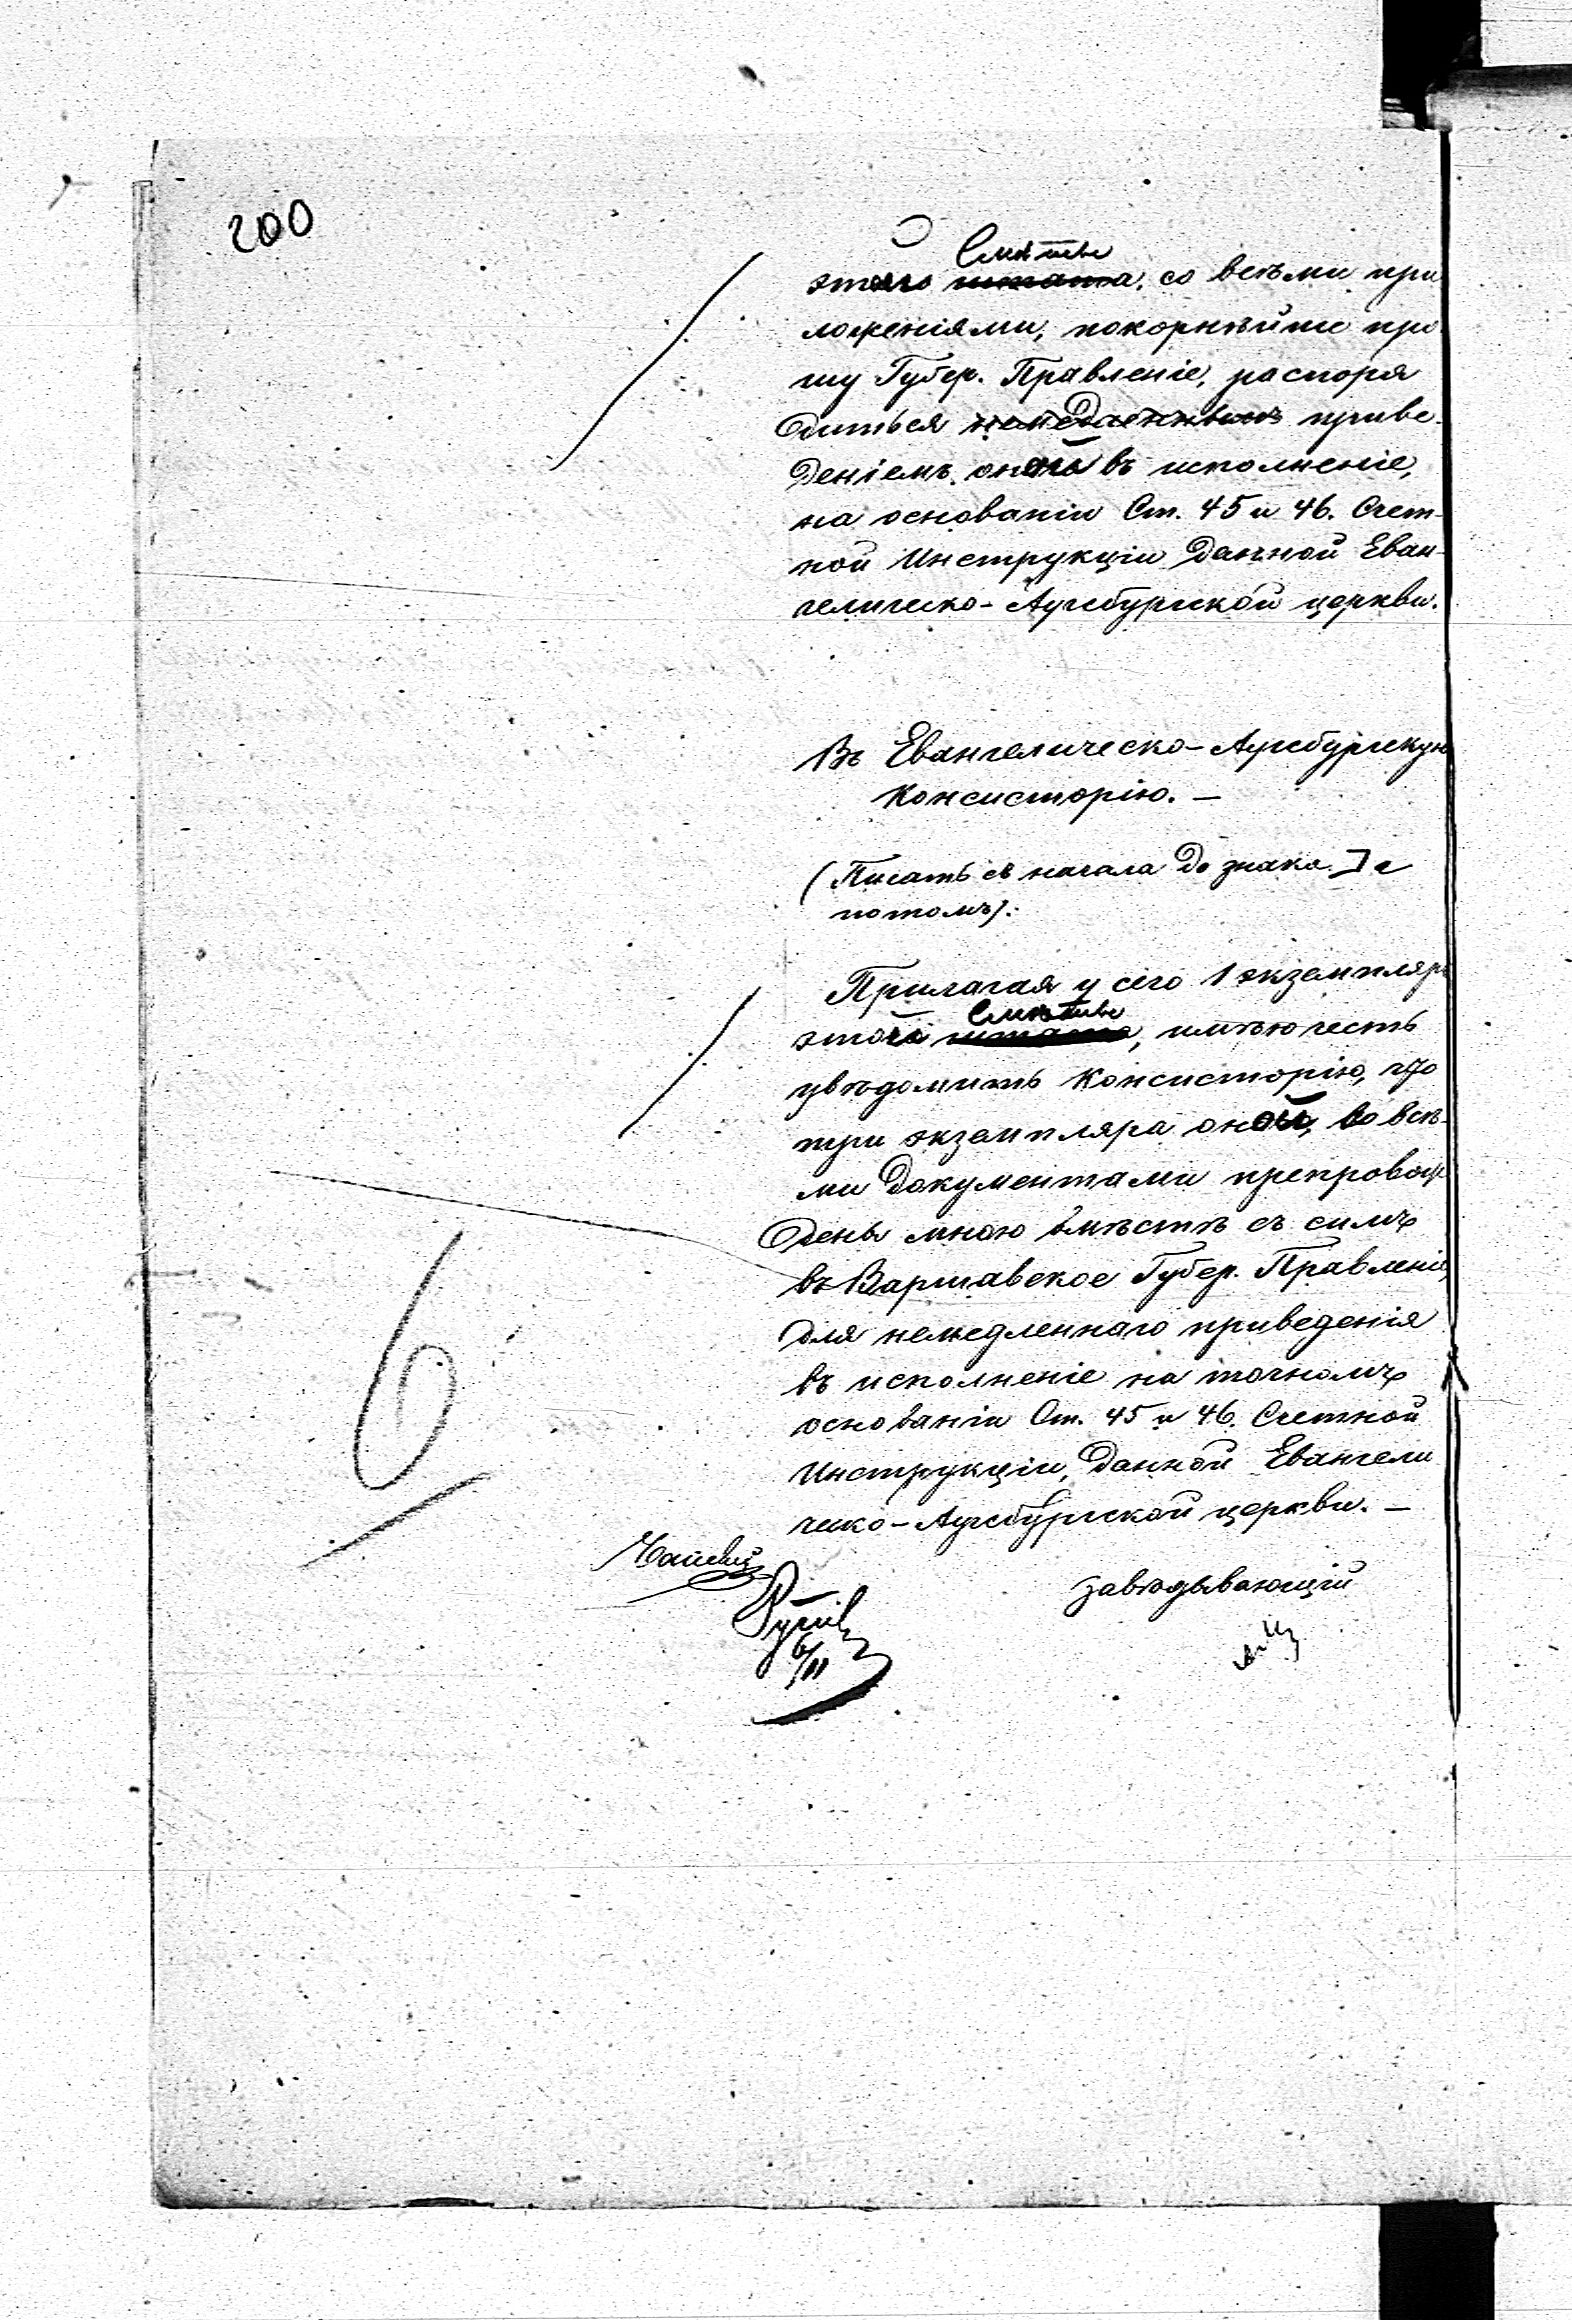 200
Смѣты
этого штата, со всѣми при
ложеніями, покорнѣйше про
шу Губер. Правленіе, распоря
диться немедленнымъ приве-
деніемъ оной въ исполненіе,
на основаніи Ст. 45 и 46. Счет-
ной Инструкціи данной Еван-
гелическо-Аугсбургской церкви.
Въ Евангелическо-Аугсбургскую
Консисторію. —
(Писать съ начала до знака ] а
потомъ):
Прилагая у сего 1 экземпляръ
Смѣты
этой штата, имѣю честь
увѣдомить Консисторію, что
три экземпляра оной, со всѣ-
ми документами препровож
дены мною вмѣстѣ съ симъ
въ Варшавское Губер. Правленіе,
для немедленнаго приведенія
въ исполненіе на точномъ
основаніи Ст. 45 и 46. Счетной
Инструкціи, данной Евангели
ческо-Аугсбургской церкви. —
завѣдывающій
6/II